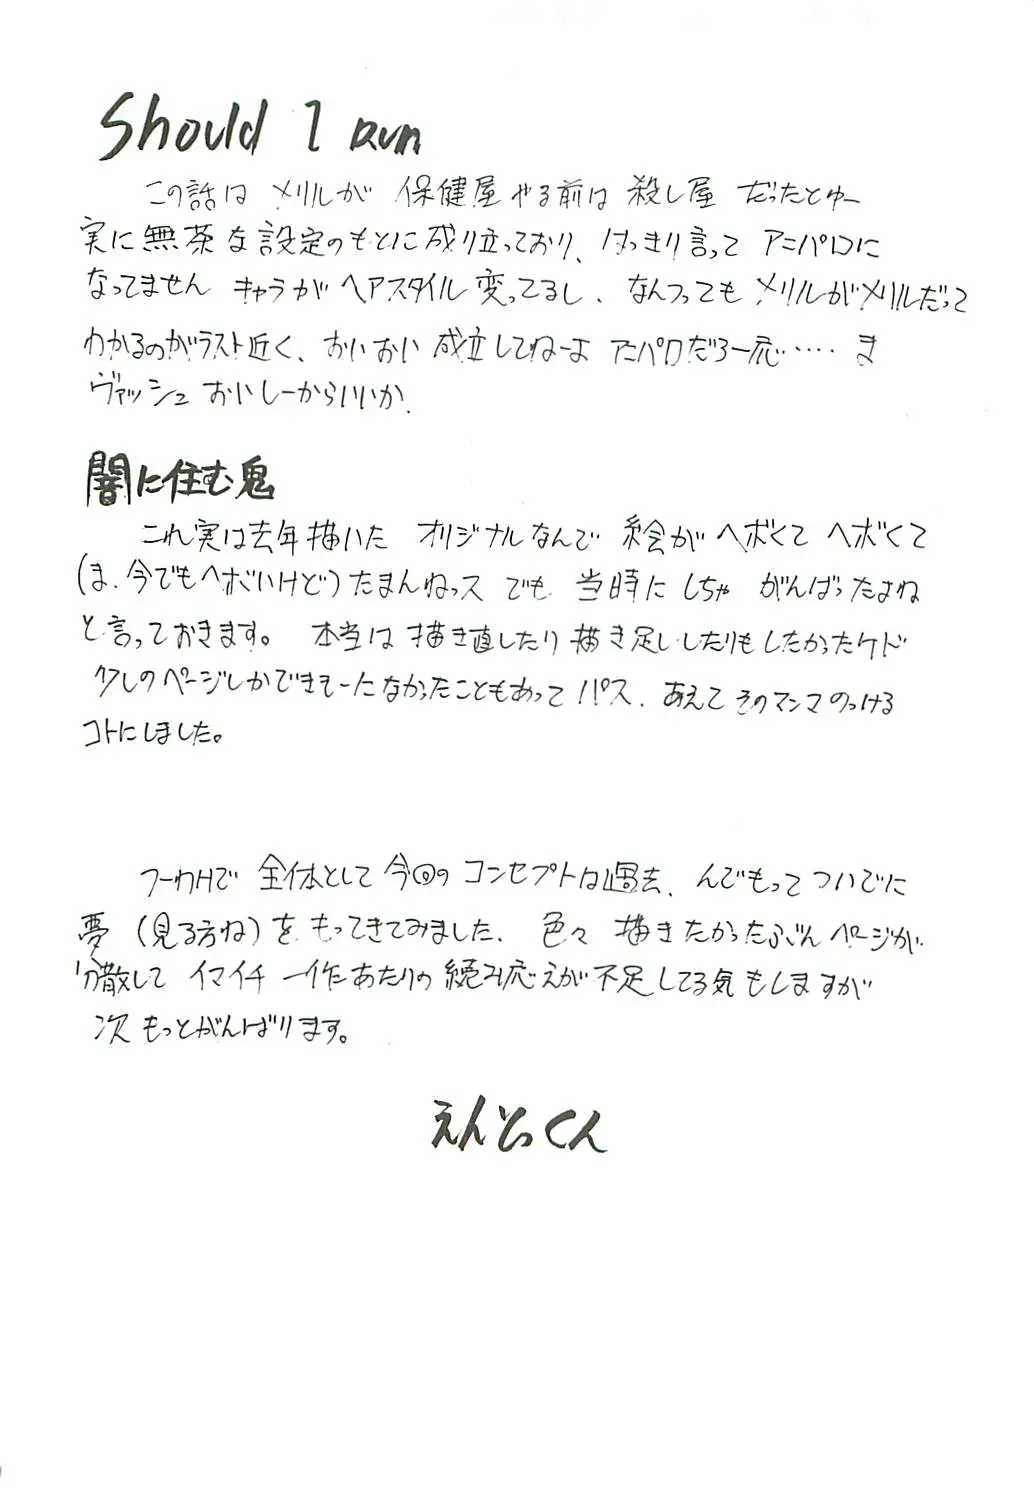 Should I Run
この話は メリルが 保健屋やる前は 殺し屋 だったとゆー
実に無茶な設定のもとに成り立っており、はっきり言って アニパロに
なってません キャラがヘアスタイル変ってるし、なんつっても メリルがメリルだって
わかるのがラスト近く、おいおい 成立してねーよ アニパロだろ一応‥‥‥ ま
ヴァッシュ おいしーからいいか.
闇に住む鬼
これ実は去年描いた オリジナルなんで 絵がヘボくて ヘボくて
(ま、今でもヘボいけど)たまんねっス でも 当時に しちゃ がんばったよね
と言っておきます。 本当は 描き直したり 描き足ししたりもしたかったケド
少しのページしかできそーになかったこともあって パス. あえて そのマンマ のっける
コトにしました。
つーわけで 全体として 今回の コンセプトは過去、んでもって ついでに
夢 (見る方ね)を もってきてみました. 色々 描きたかったぶん ページが
分散して イマイチ 一作あたりの 読み応えが 不足してる気もしますが
次 もっとがんばります。
えんどっくん